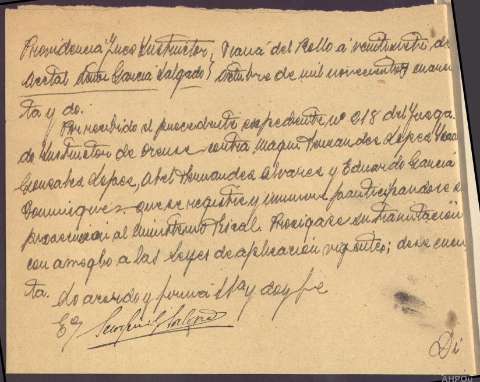 Providencia Juez Instructor, Viana del Bollo a veintinueve de
accetal Señor Garcia Salgado, octubre de mil novecientos cuaren
ta y dos.
Por recibido el precedente expediente nº 218 del Juzga
do Instructor de Orense contra Maqui Fernandes Lopes,
Gonzales Lopes, Abel Fernandes Alvares y Eduardo Garcia
Dominguez que se registre y numere participandose su
al Ministerio Fiscal. Prosigase su tramitación
con arreglo a las Leyes de aplicación vigentes; dese cuen
ta. Lo acordo y firma SSª y doy fe
E/
Di
AHPOu